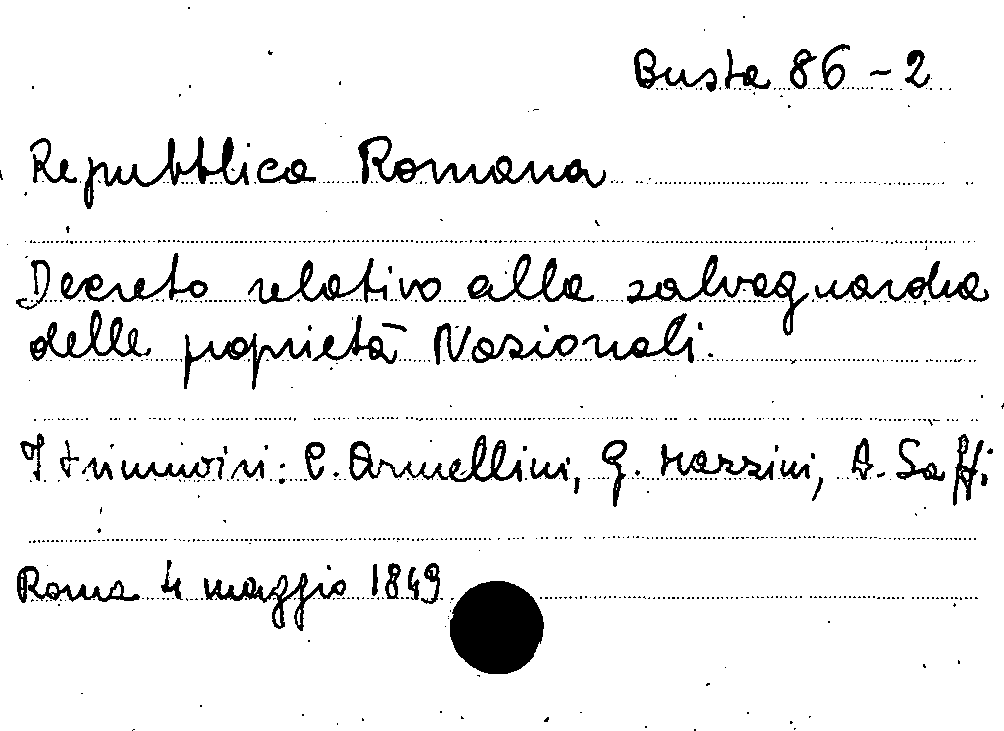 Busta 86-2
Repubblica Romana
Decreto relativo alla salvaguardia
delle proprietà Nazionali.
I triumviri: C. Armellini, G. Mazzini, A. Saffi
Roma 4 maggio 1849